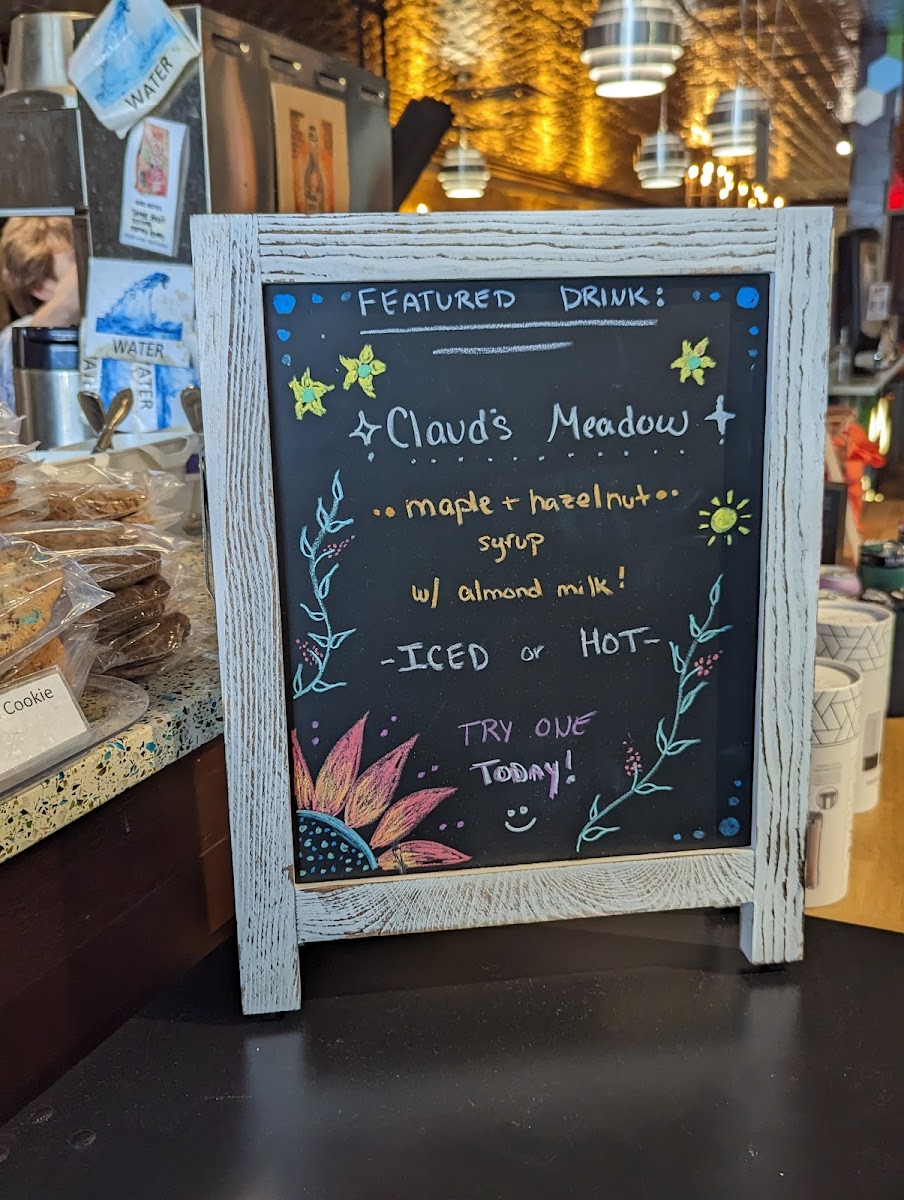 WATER
WATER
WATER
FEATURED DRINK:
Claud's Meadow
maple + hazelnut
syrup
w/ almond milk!
-ICED or HOT-
TRY ONE
TODAY!
Cookie